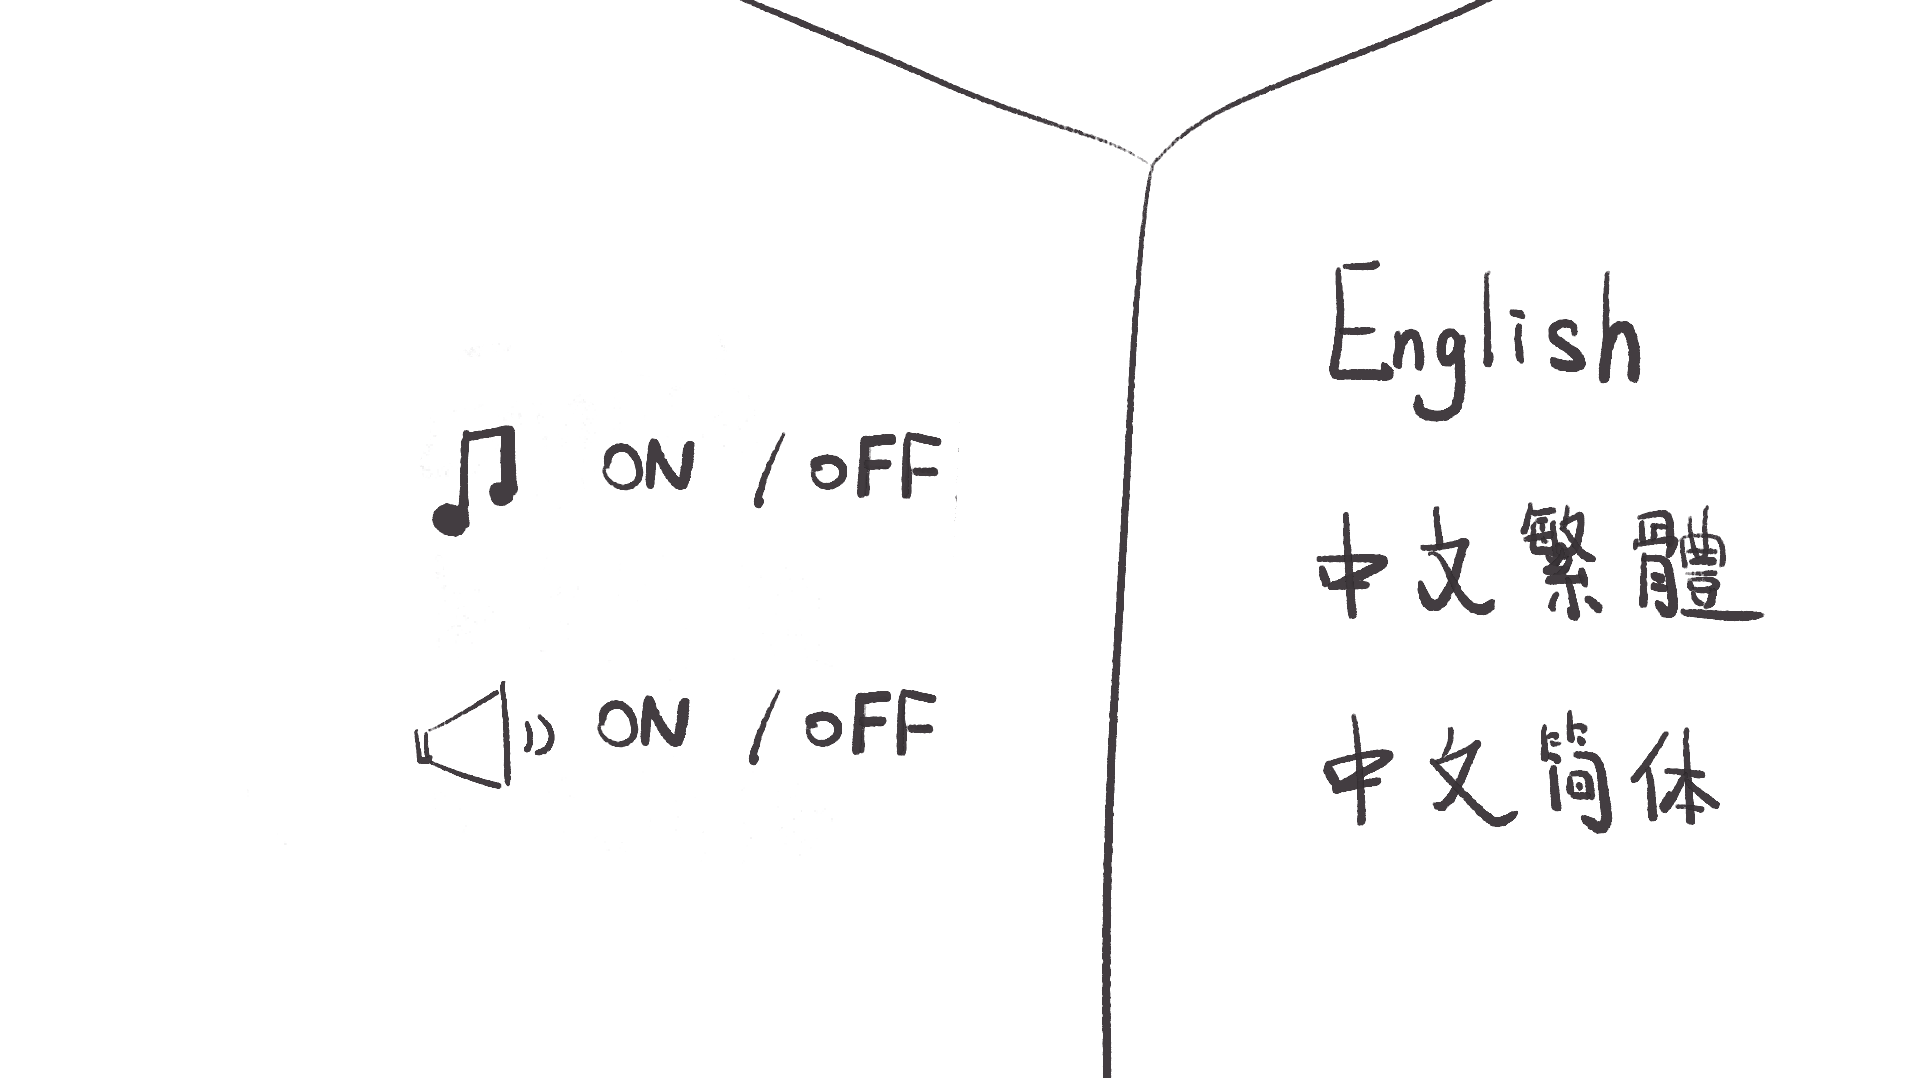 ON / OFF
ON / OFF
English
中文繁體
中文简体